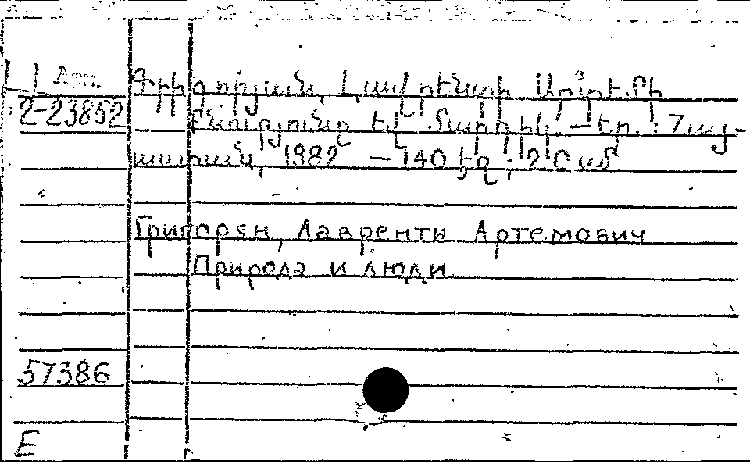 Գրիգորյան, Լավրենտի Արտեմի
2-23852
Բնությունը եվ մարդիկ. — Եր. : Հայ-
աստան, 1982 — 140 էջ ; 20 սմ
Григорян, Лавренти Артемович
Природа и люди.
57386
E